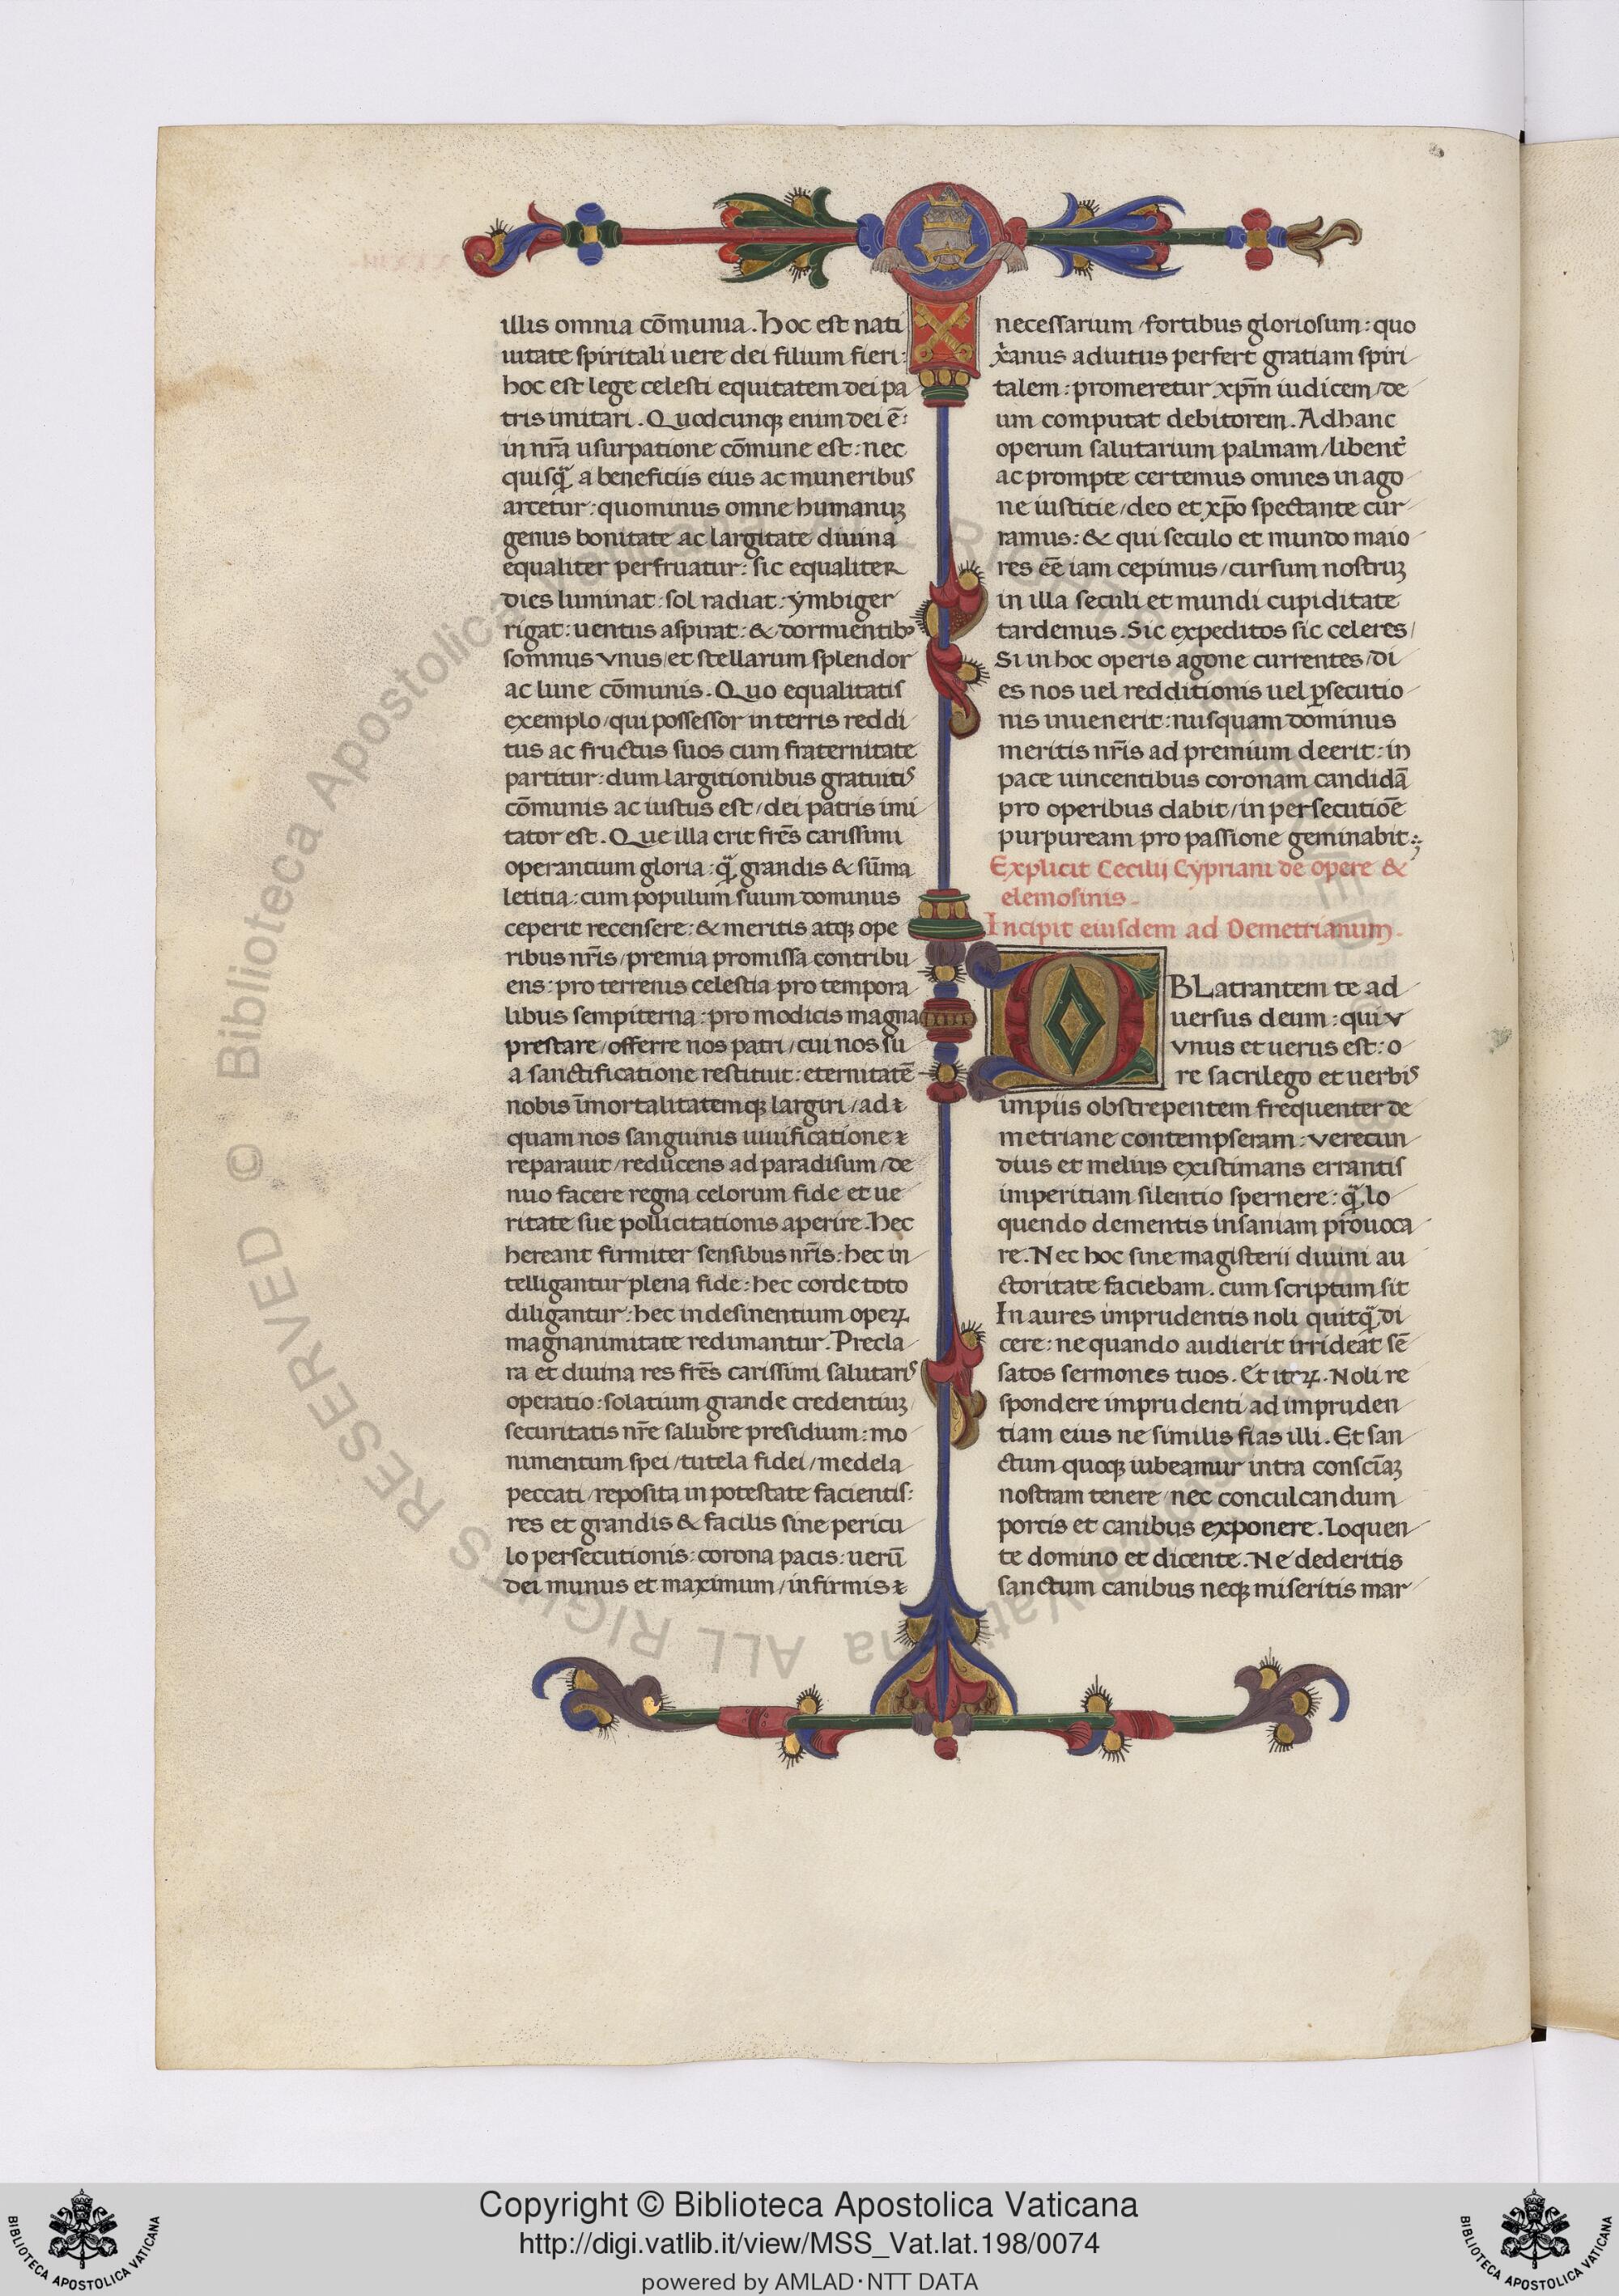 illis omnia cõmunia. Hoc est nati
uitate spiritali uere dei filium fieri:
hoc est lege celesti equitatem dei pa
tris imitari. Quodcunqꝫ enim dei ē:
in nr̃a usurpatione cõmune est: nec
quisq̃ȝ a beneficiis eius ac muneribus
arcetur: quominus omne humanuꝫ
genus bonitate ac largitate diuina
equaliter perfruatur: sic equaliter
dies luminat: sol radiat: ẏmbiger
rigat: uentus aspirat: & dormientibꝰ
somnus vnus/et stellarum splendor
ac lune cõmunis. Quo equalitatis
exemplo/qui possessor in terris reddi
tus ac fructus suos cum fraternitate
partitur: dum largitionibus gratuitis
cõmunis ac iustus est/dei patris imi
tator est. Que illa erit fr̃es carissimi
operantium gloria: q̃ȝ grandis & sũma
letitia: cum populum suum dominus
ceperit recensere: & meritis atqꝫ ope
ribus nr̃is/premia promissa contribu
ens: pro terrenis celestia pro tempora
libus sempiterna: pro modicis magna
prestare/offerre nos patri/cui nos su
a sanctificatione restituit: eternitatē
nobis ĩmortalitatemqꝫ largiri/ad ꝛ
quam nos sanguinis uiuificatione ꝛ
reparauit/reducens ad paradisum/de
nuo facere regna celorum fide et ue
ritate sue pollicitationis aperire. Hec
hereant firmiter sensibus nr̃is: hec in
telligantur plena fide: hec corde toto
diligantur: hec indesinentium operꝝ
magnanimitate redimantur. Precla
ra et diuina res fr̃es carissimi salutaris
operatio: solatium grande credentiuꝫ
securitatis nr̃e salubre presidium: mo
nimentum spei/tutela fidei/medela
peccati/reposita in potestate facientis:
res et grandis & facilis sine pericu
lo persecutionis: corona pacis: uerũ
dei munus et maximum/infirmis ꝛ
necessarium/fortibus gloriosum: quo
xr̃anus adiutus perfert gratiam spiri
talem: promeretur xp̃m iudicem/de
um computat debitorem. Ad hanc
operum salutarium palmam/libent̃
ac prompte certemus omnes in ago
ne iustitie/deo et xp̃o spectante cur
ramus: & qui seculo et mundo maio
res eẽ iam cepimus/cursum nostruꝫ
in illa seculi et mundi cupiditate
tardemus. Sic expeditos sic celeres/
Si in hoc operis agone currentes/di
es nos uel redditionis uel ꝑsecutio
nis inuenerit: nusquam dominus
meritis nr̃is ad premium deerit: in
pace uincentibus coronam candidã
pro operibus dabit/in persecutiõe
purpuream pro passione geminabit:
Explicit Cecilij Cypriani de opere &
elemosinis.
Incipit eiusdem ad Demetrianum.
OBLatrantem te ad
uersus deum: qui v
vnus et uerus est: o
re sacrilego et uerbis
impiis obstrepentem frequenter de
metriane contempseram: verecun
dius et melius existimans errantis
imperitiam silentio spernere: q̃ȝ lo
quendo dementis insaniam prouoca
re. Nec hoc sine magisterii diuini au
ctoritate faciebam. cum scriptum sit
In aures imprudentis noli quitq̃ȝ di
cere: ne quando audierit irrideat sẽ
satos sermones tuos. Et iterꝝ. Noli re
spondere imprudenti ad impruden
tiam eius ne similis fias illi. Et san
ctum quoqꝫ iubeamur intra consciãꝫ
nostram tenere/nec conculcandum
porcis et canibus exponere. loquen
te domino et dicente. Ne dederitis
sanctum canibus neqꝫ miseritis mar
Copyright © Biblioteca Apostolica Vaticana
http://digi.vatlib.it/view/MSS_Vat.lat.198/0074
powered by AMLAD·NTT DATA